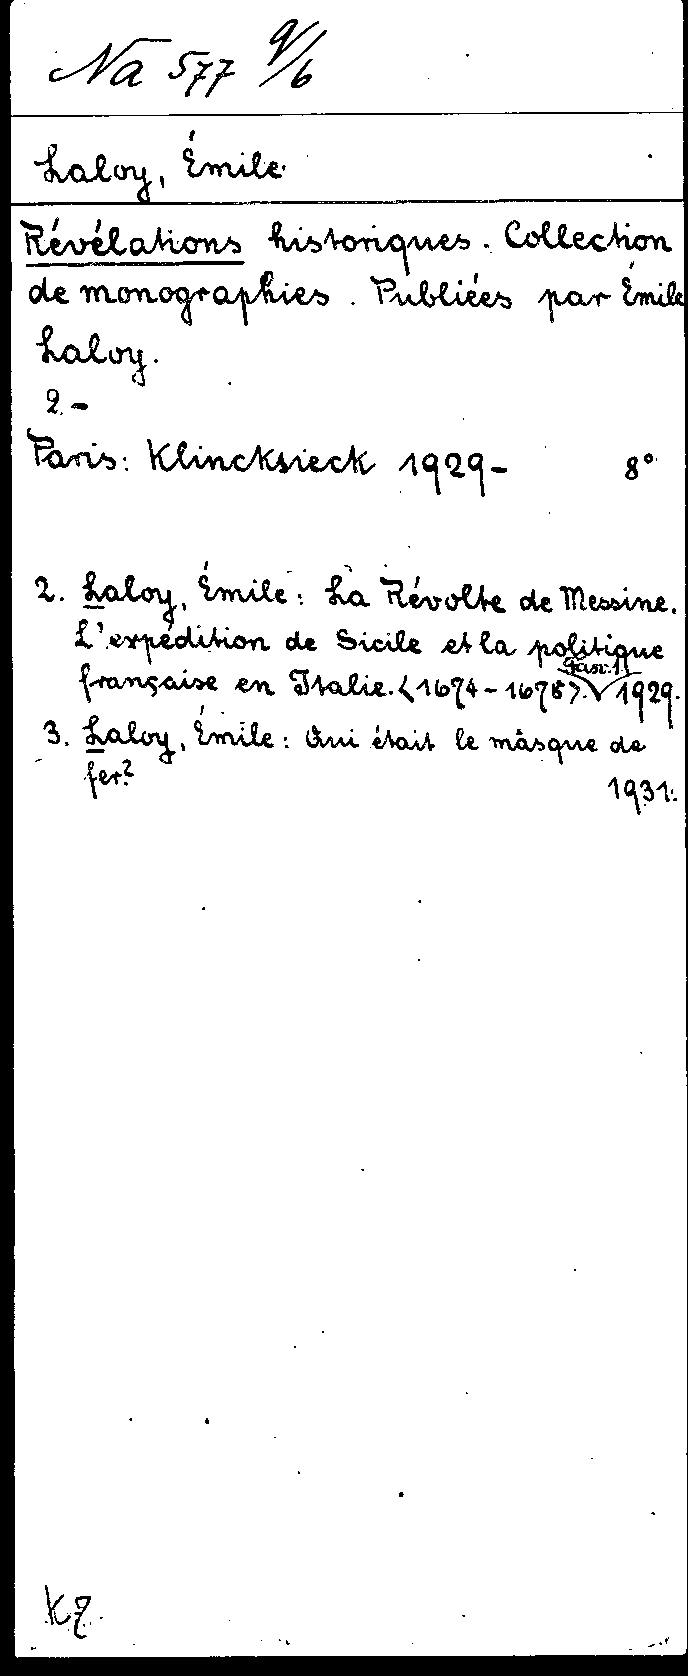 Na 577 9/6
Laloy, Émile
Révélations historiques. Collection
de monographies. Publiées par Émile
Laloy.
2.-
Paris: Klincksieck 1929- 8°
2. Laloy, Émile: La Révolte de Messine.
L'expédition de Sicile et la politique
française en Italie. <1674-1678>. 1929.
3. Laloy, Émile: Qui était le masque de
fer? 1931.